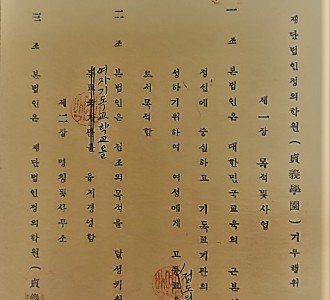 재단법인정의학원(貞義學園)기부행위
제一장 목적및사업
一 조 본법인은 대한민국교육의 근본
정신에 중실하고 기독교기관의
성하기위하여 여성에게 고등
도저목적함
二 조 본법인은 전조의목적을 달성키위
여자기독교학교을
유지경영함
제二장 명칭및사무소
三 조 본법인은 재단법인정의학원(貞義